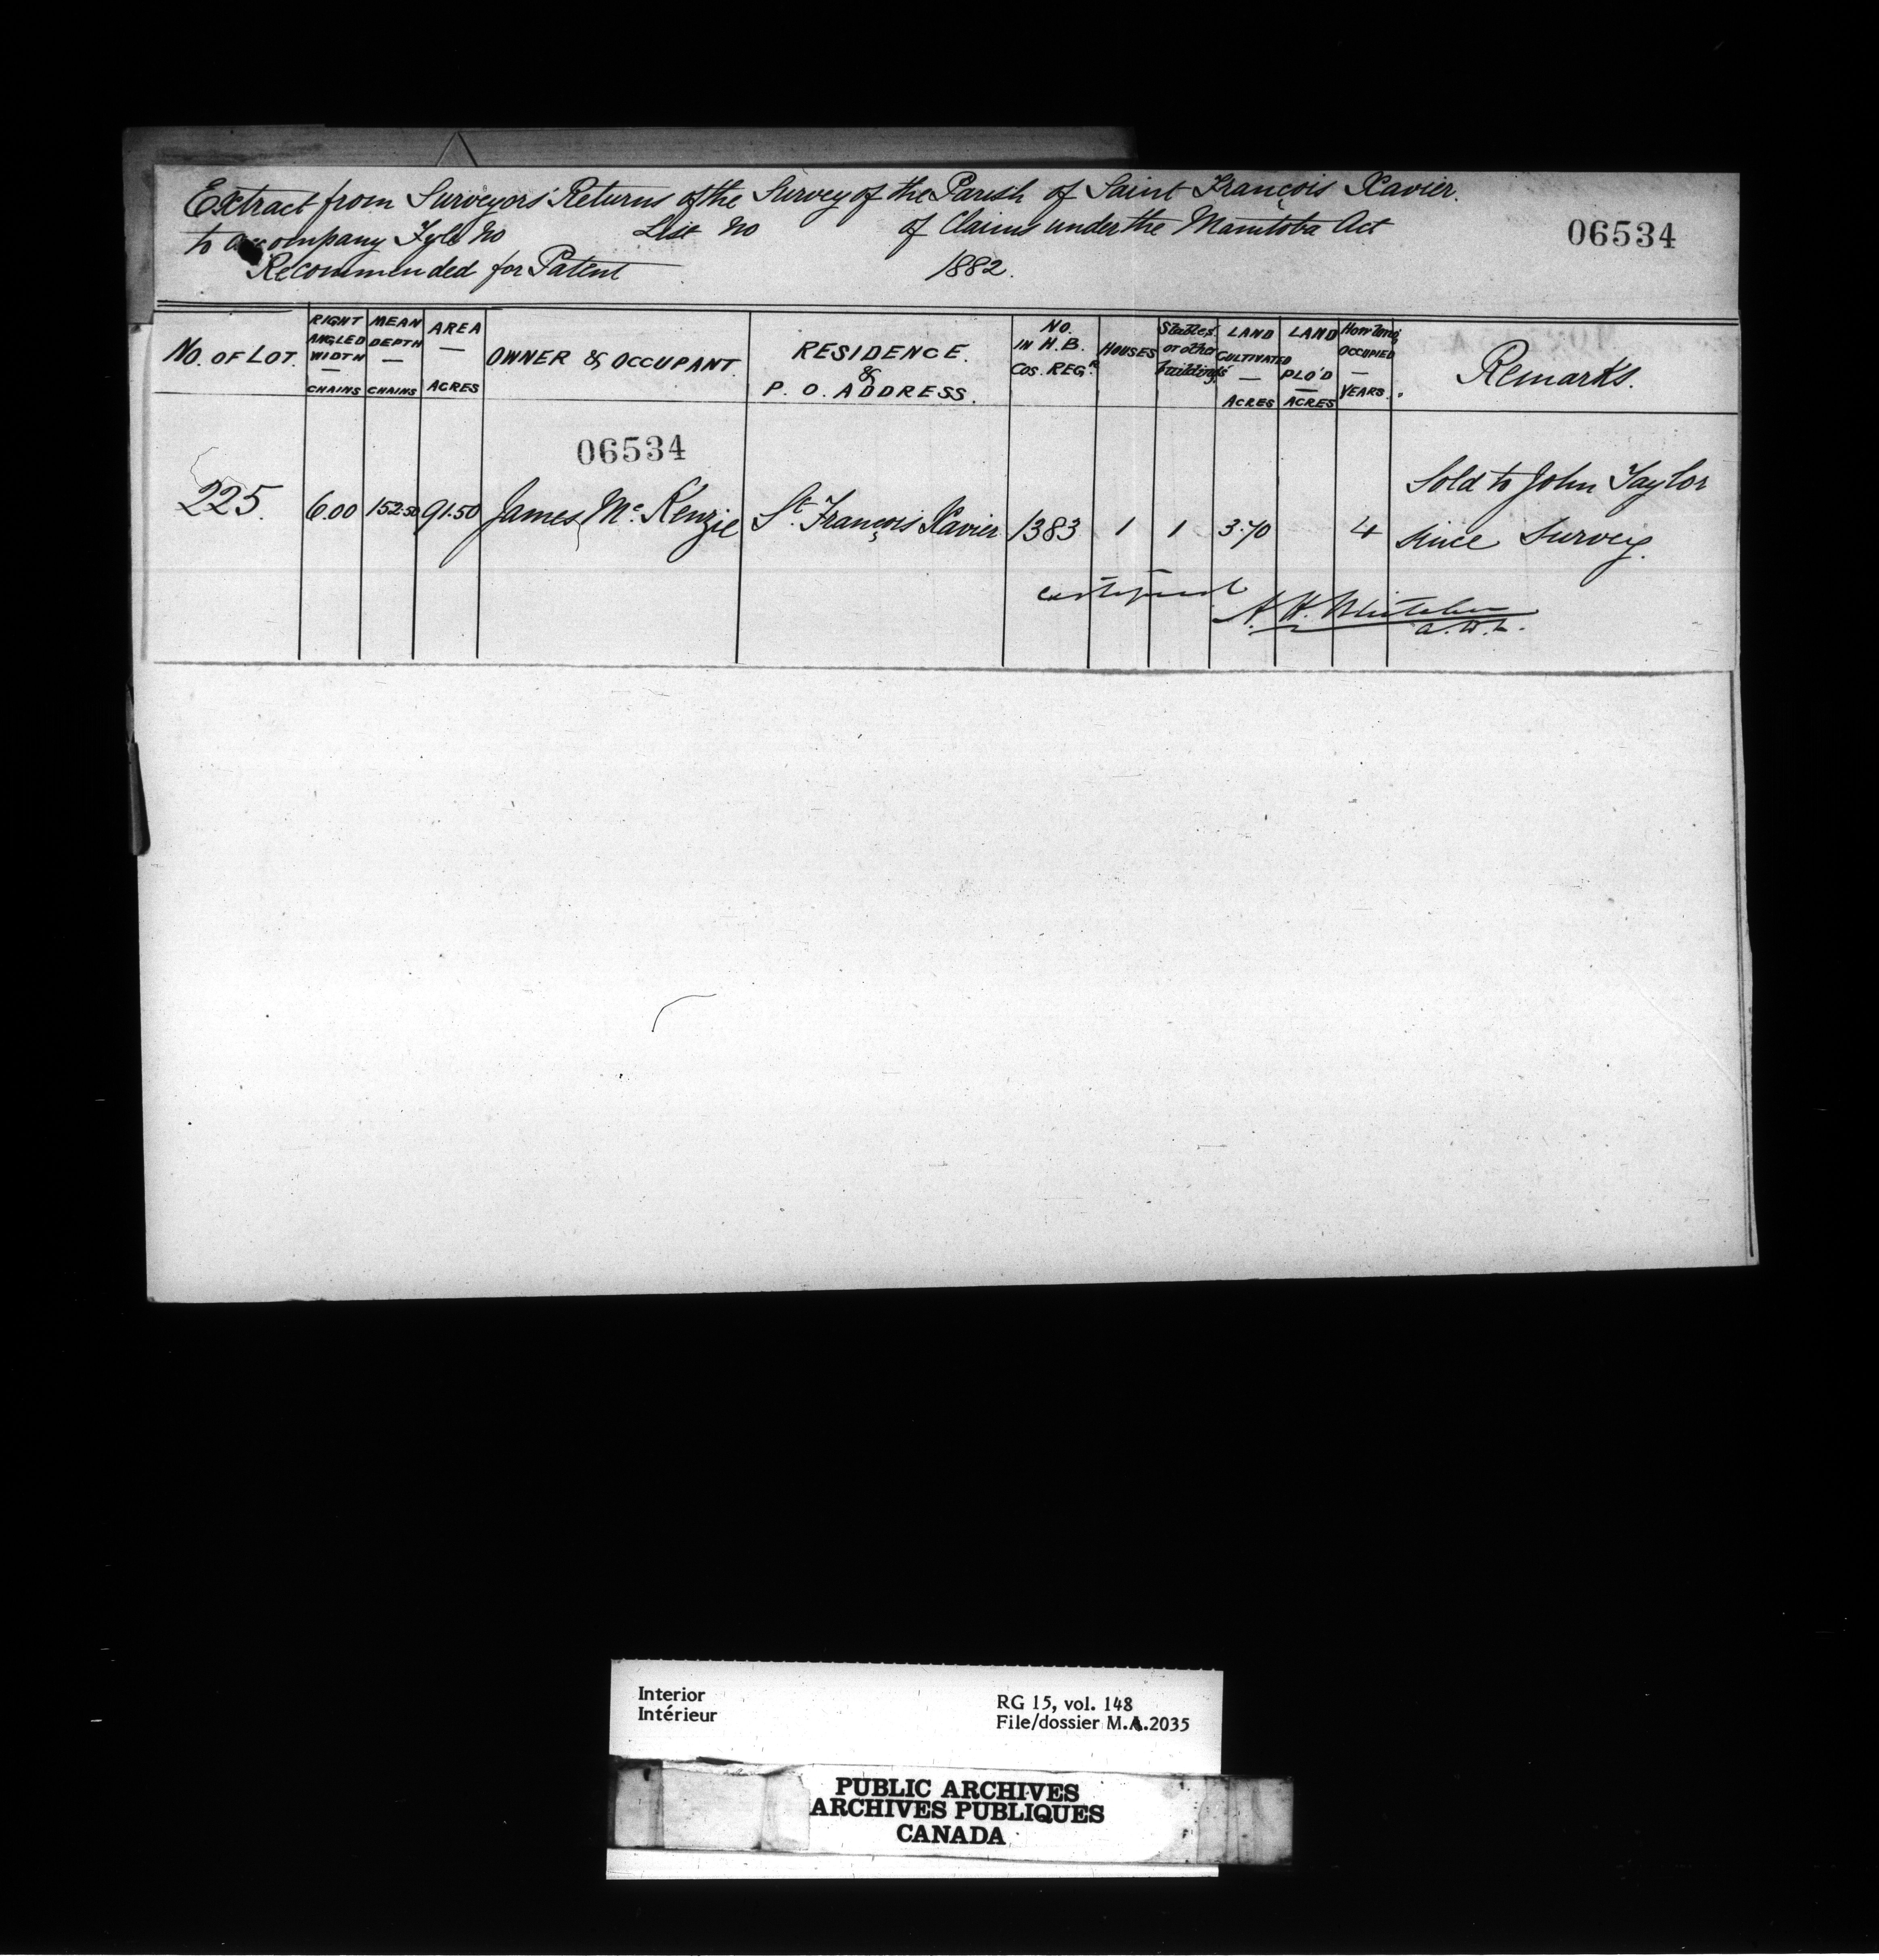 Extract from Surveyors' Returns of the Survey of the Parish of Saint François Xavier.
to accompany Fyle No List No of Claims under the Manitoba Act
06534
Recommended for Patent 1882.
No. OF LOT.
RIGHT ANGLED WIDTH — CHAINS
MEAN DEPTH — CHAINS
AREA — ACRES
OWNER & OCCUPANT.
RESIDENCE. & P. O. ADDRESS.
NO. IN H. B. COS. REGR.
HOUSES
Stables or other buildings
LAND CULTIVATED — ACRES
LAND PLO'D — ACRES
How long OCCUPIED — YEARS.
Remarks.
06534
225. 6.00 152.50 91.50 James McKenzie St. François Xavier 1383 1 1 3.70 4 Sold to John Taylor
since Survey.
certified
A. H.
Interior
Intérieur
RG 15, vol. 148
File/dossier M.A.2035
PUBLIC ARCHIVES
ARCHIVES PUBLIQUES
CANADA